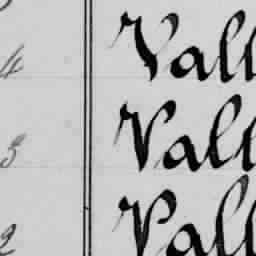 4 Vall
3 Vall
2 Vall